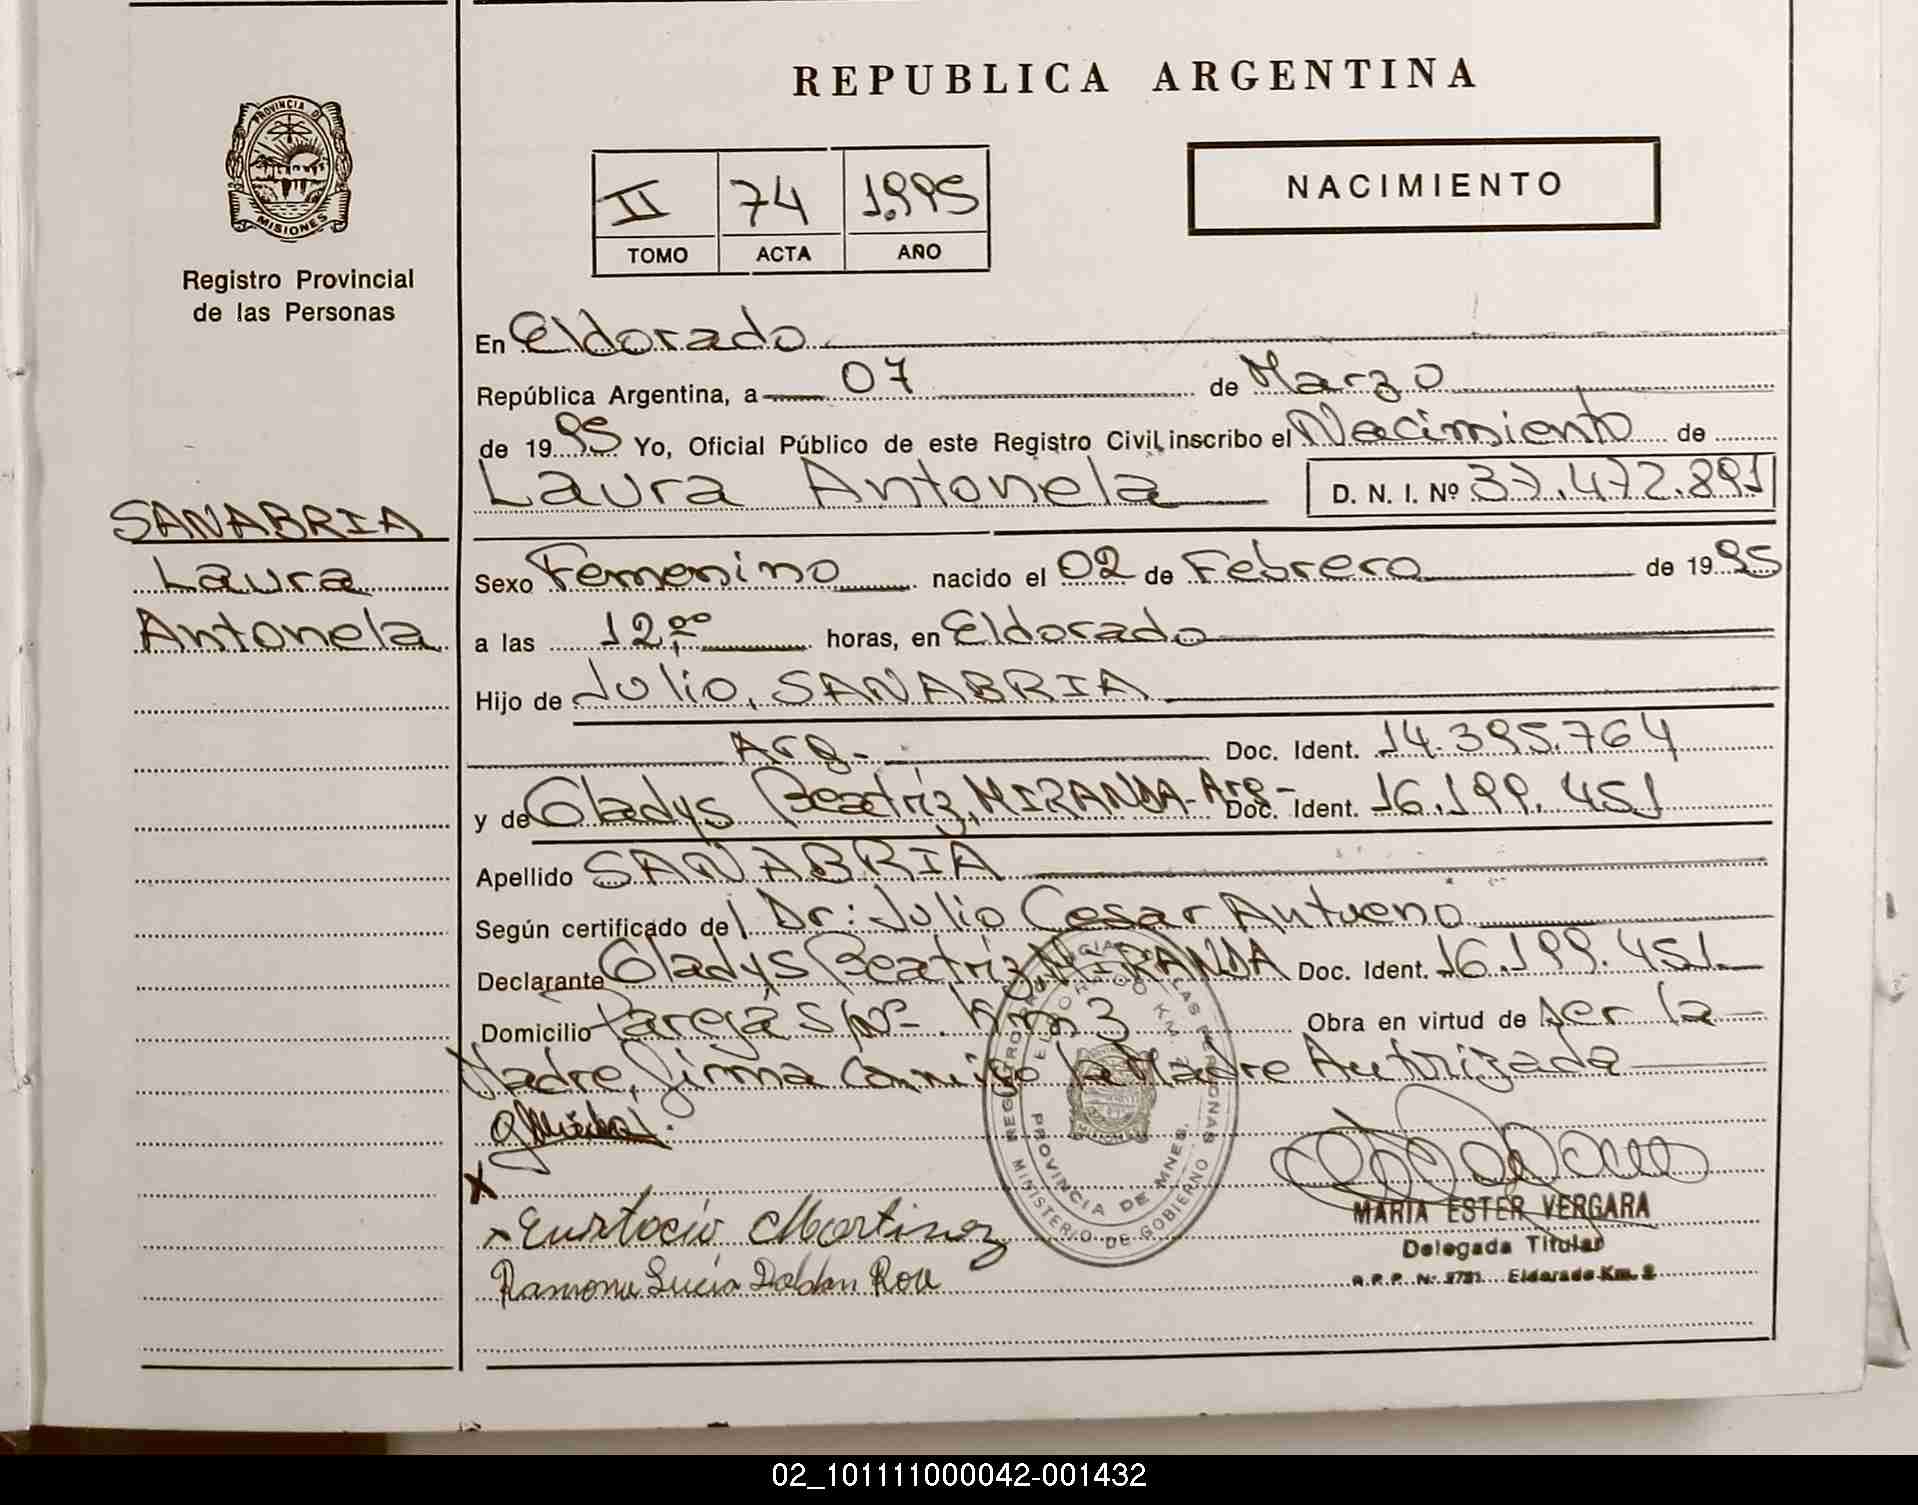 REPUBLICA ARGENTINA
PROVINCIA DE
MISIONES
Registro Provincial
de las Personas
II 74 1.995
TOMO ACTA AÑO
NACIMIENTO
En Eldorado
República Argentina, a 07 de Marzo
de 19 95 Yo, Oficial Público de este Registro Civil, inscribo el Nacimiento de
Laura Antonela D. N. I. Nº 37.472.891
SANABRIA
Laura
Antonela
Sexo Femenino nacido el 02 de Febrero de 19 95
a las 12,00 horas, en Eldorado
Hijo de Julio, SANABRIA
Arg- Doc. Ident. 14.395.764
y de Gladys Beatriz, MIRANDA- Arg- Doc. Ident. 16.199.451
Apellido SANABRIA
Según certificado del Dr: Julio Cesar Antueno
Declarante Gladys Beatriz, MIRANDA Doc. Ident. 16.199.451
Domicilio Parejas S/Nº Km 3 Obra en virtud de ser la
Madre, firma conmigo la Madre Autorizada
REGISTRO PROVINCIAL DE LAS PERSONAS
ELDORADO KM. 2
PROVINCIA DE MNES.
MINISTERIO DE GOBIERNO
x Eustacio Martinez
Ramona Lucia Doldan
MARIA ESTER VERGARA
Delegada Titular
Eldorado Km. 2
02_101111000042-001432